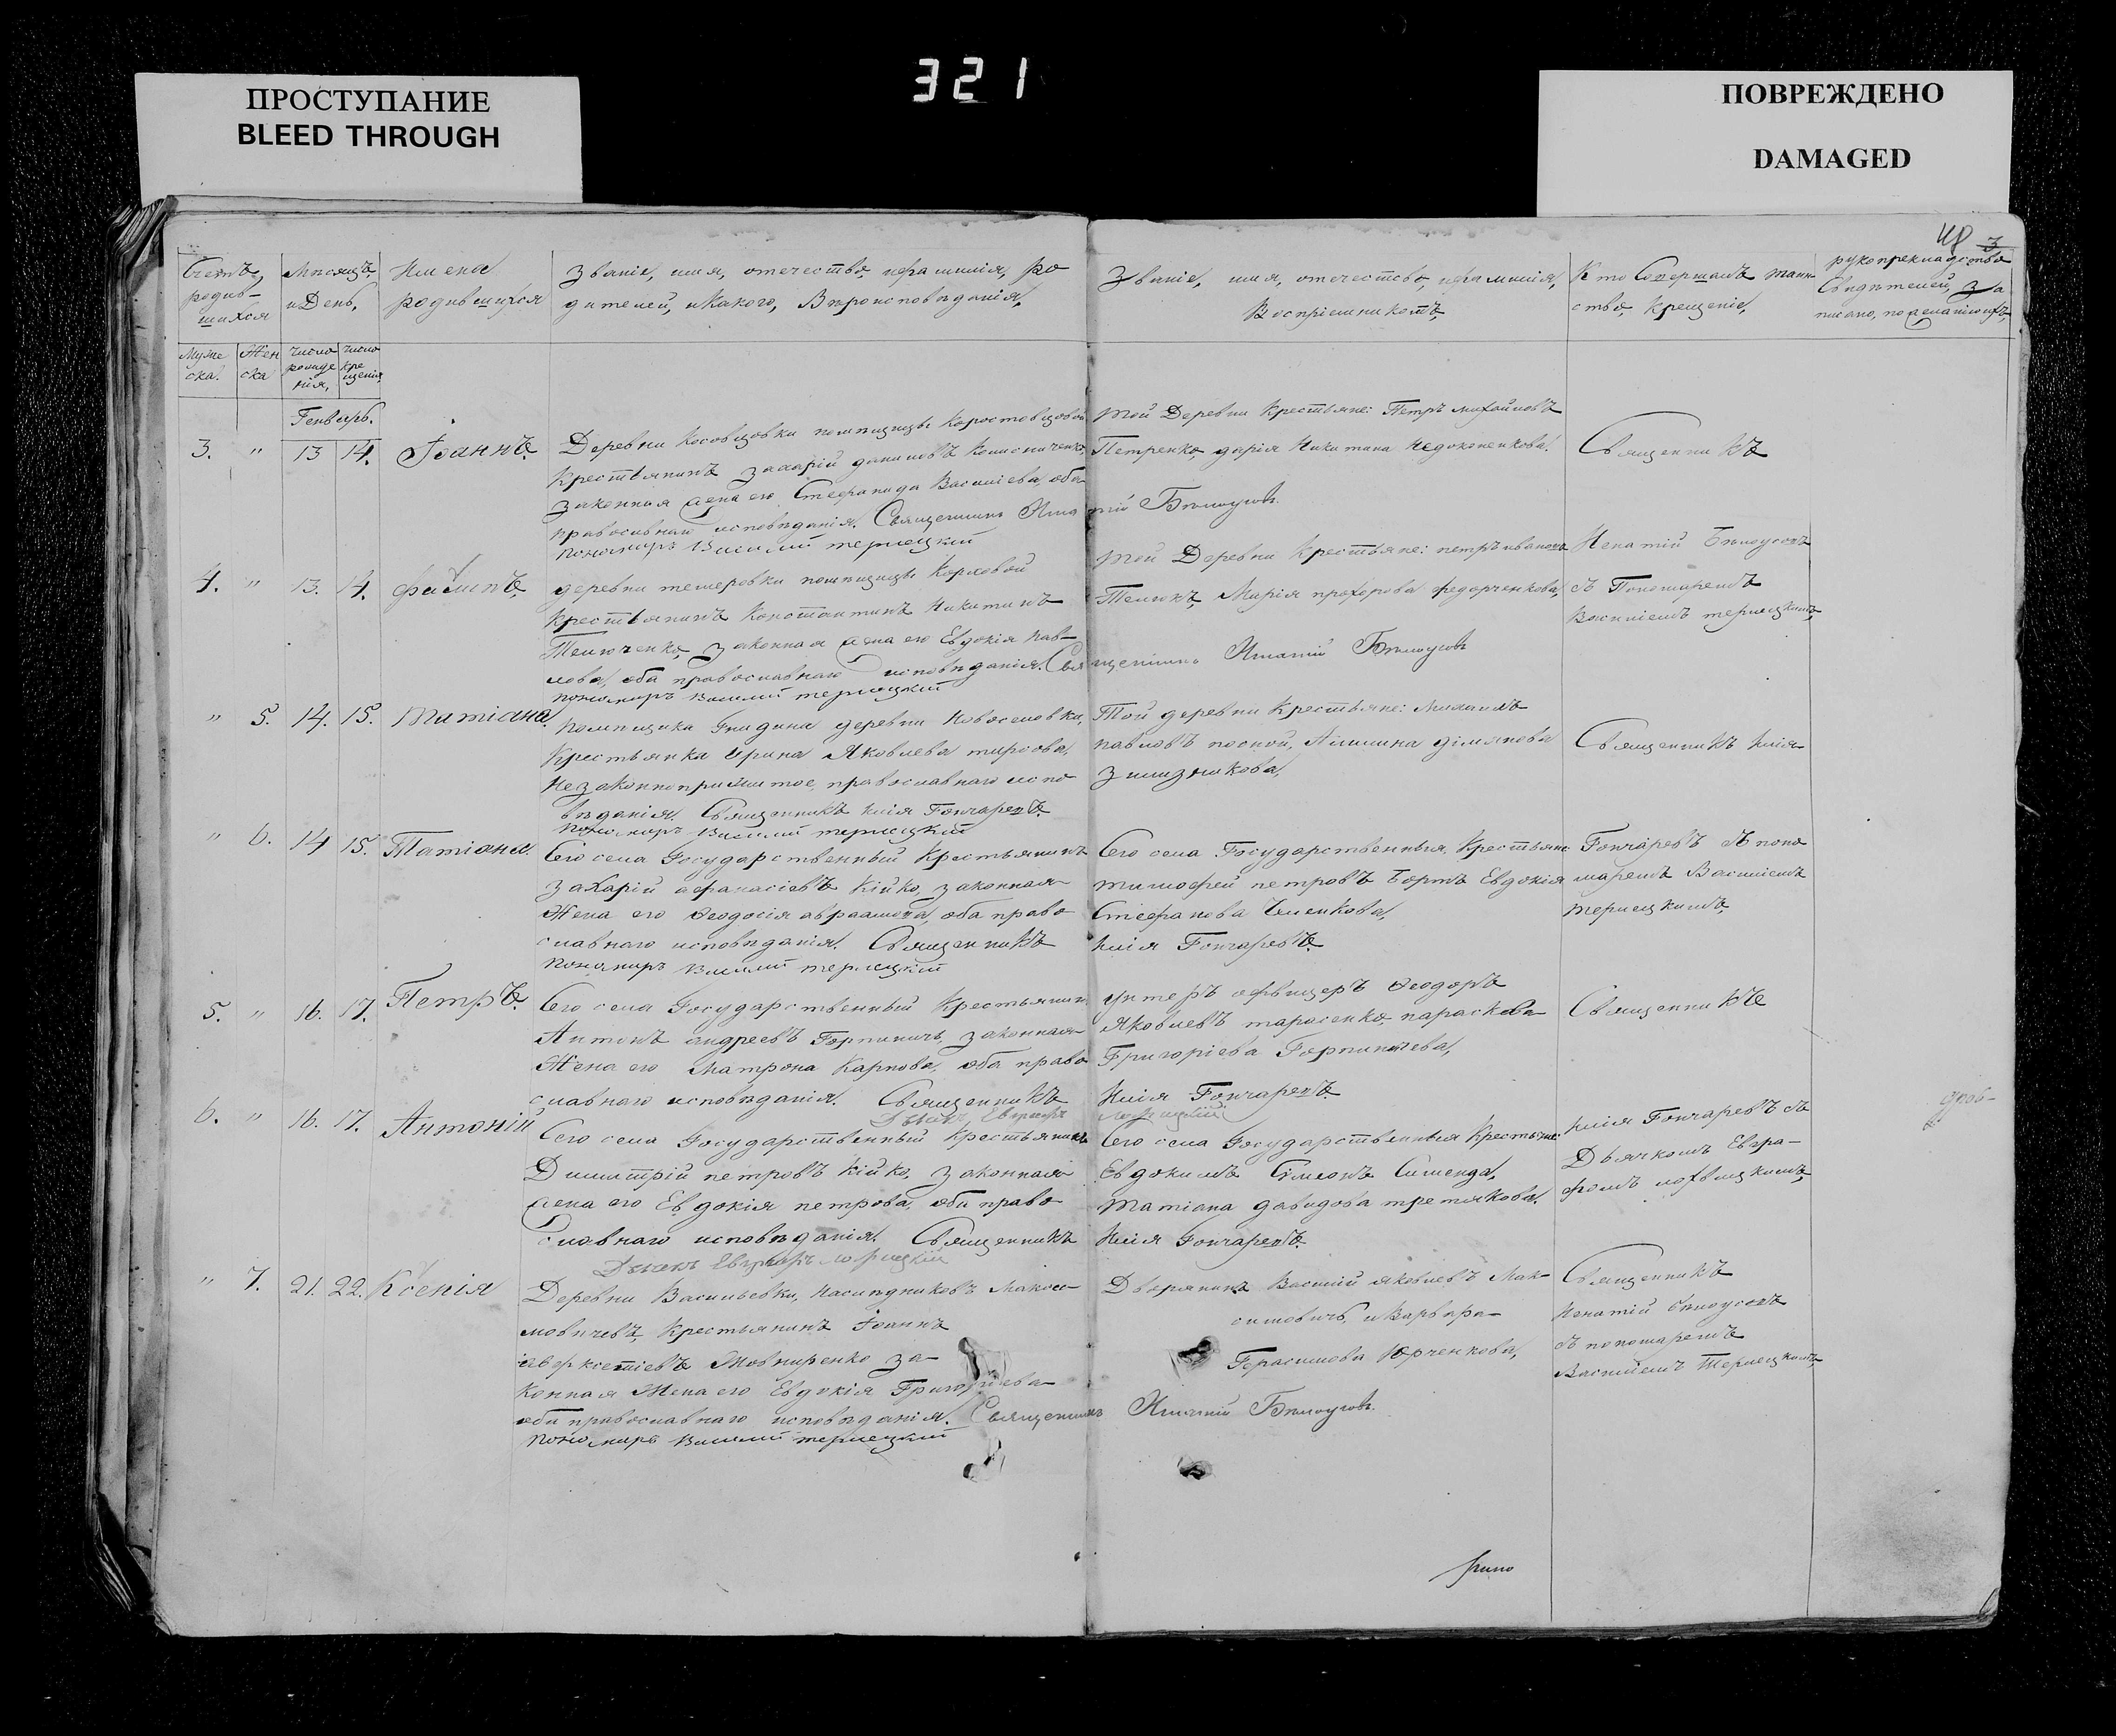 321
ПРОСТУПАНИЕ
BLEED THROUGH
ПОВРЕЖДЕНО
DAMAGED
3
Счетъ родив-шихся
Мѣсяцъ и День,
Имена родившихся
Званіе, имя, отечество, и фамилія, ро
дителей, и Какого, Вѣроисповѣданія,
Званіе, имя, отечество, и фамилія,
Воспріемниковъ,
Кто Совершалъ таин
ство, Крещеніе,
рукоприкладство
Свидѣтелей, за
писано, по желанію ихъ,
Муже
ска.
Жен
ска
число
рожде
нія,
число
кре
щенія,
Генварь.
3. " 13 14. Іоаннъ.
Деревни Косовцовки помѣщицы Коростовцовой
Крестьянинъ Захарій даниловъ
законная жена его Стефанида Василіева, оба
православнаго исповѣданія. Священникъ Игнатій Бѣлоусовъ
пономарь Василий терлецкий
той Деревни Крестьяне: Петръ михайловъ
Петренко, дарія Никитина Недоконенкова.
Священникъ
4. " 13. 14. филипъ,
деревни темеровки помѣщицы Корховой
Крестьянинъ Константинъ Никитинъ
законная жена его Евдокія пав-
лова, оба православнаго исповѣданія. Священникъ Игнатій Бѣлоусовъ
пономарь Василий терлецкий
той Деревни Крестьяне: петръ ивановъ
Марія прохорова федорченкова,
Игнатій Бѣлоусовъ
съ Пономаремъ
Василіемъ терлецкимъ,
" 5. 14. 15. Татіана
помѣщика Гнидина деревни Новоселовки,
Крестьянка ирина Яковлева
незаконноприжитое, православнаго испо
вѣданія. Священникъ илія Гончаревъ.
пономарь Василий терлецкий
Той деревни Крестьяне: Михаилъ
павловъ
Священникъ илія
" 6. 14 15. Татіана.
Сего села Государственный Крестьянинъ
захарій афанасіевъ Кійко, законная
Жена его Феодосія авраамова, оба право
славнаго исповѣданія. Священникъ
пономарь Василий терлецкий
Сего села Государственныя Крестьяне
тимофей петровъ Бортъ Евдокія
Стефанова
илія Гончаревъ.
Гончаревъ съ поно
маремъ Василіемъ
терлецкимъ,
5. " 16. 17. Петръ.
Сего села Государственный Крестьянинъ
Антонъ андреевъ Горпиничь, законная
Жена его Матрона Карпова, оба право
славнаго исповѣданія. Священникъ
унтеръ офицеръ Феодоръ
Яковлевъ тарасенко, параскева
Григоріева Горпиничева,
Илія Гончаревъ.
Священникъ
6. " 16. 17. Антоній
Сего села Государственный Крестьянинъ
Димитрій петровъ Кійко, законная
жена его Евдокія петрова, оба право
славнаго исповѣданія. Священникъ
Сего села Государственныя Крестьяне:
Евдокимъ
Татіана давидова третякова.
Илія Гончаревъ.
илія Гончаревъ съ
Дьячкомъ Евгра-
фомъ
" 7. 21. 22. Ксенія
Деревни Васильевки, наслѣдниковъ Макси-
мовичевъ, Крестьянинъ Іоаннъ
за-
конная Жена его Евдокія Григоріева
оба православнаго исповѣданія. Священникъ Игнатій Бѣлоусовъ.
пономарь Василий терлецкий
Дворянинъ Василій яковлевъ Мак-
симовичь, и Варвара
Герасимова Юрченкова,
Священникъ
Игнатій Бѣлоусовъ
съ пономаремъ
Василіемъ Терлецкимъ,